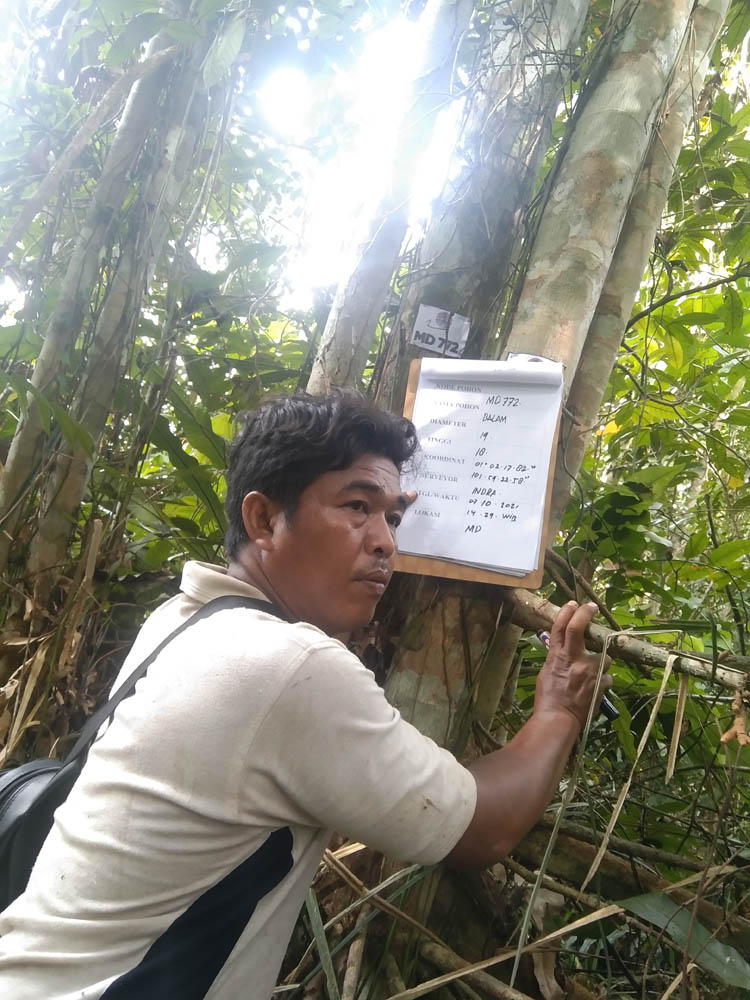 MD 772
KODE POHON MD 772
NAMA POHON BALAM
DIAMETER 19.
TINGGI 18.
KOORDINAT 01° 02' 17.82"
101° 59' 22.58"
SURVEYOR INDRA.
TGL/WAKTU 07 10 2021
14.29. WIB
LOKASI MD